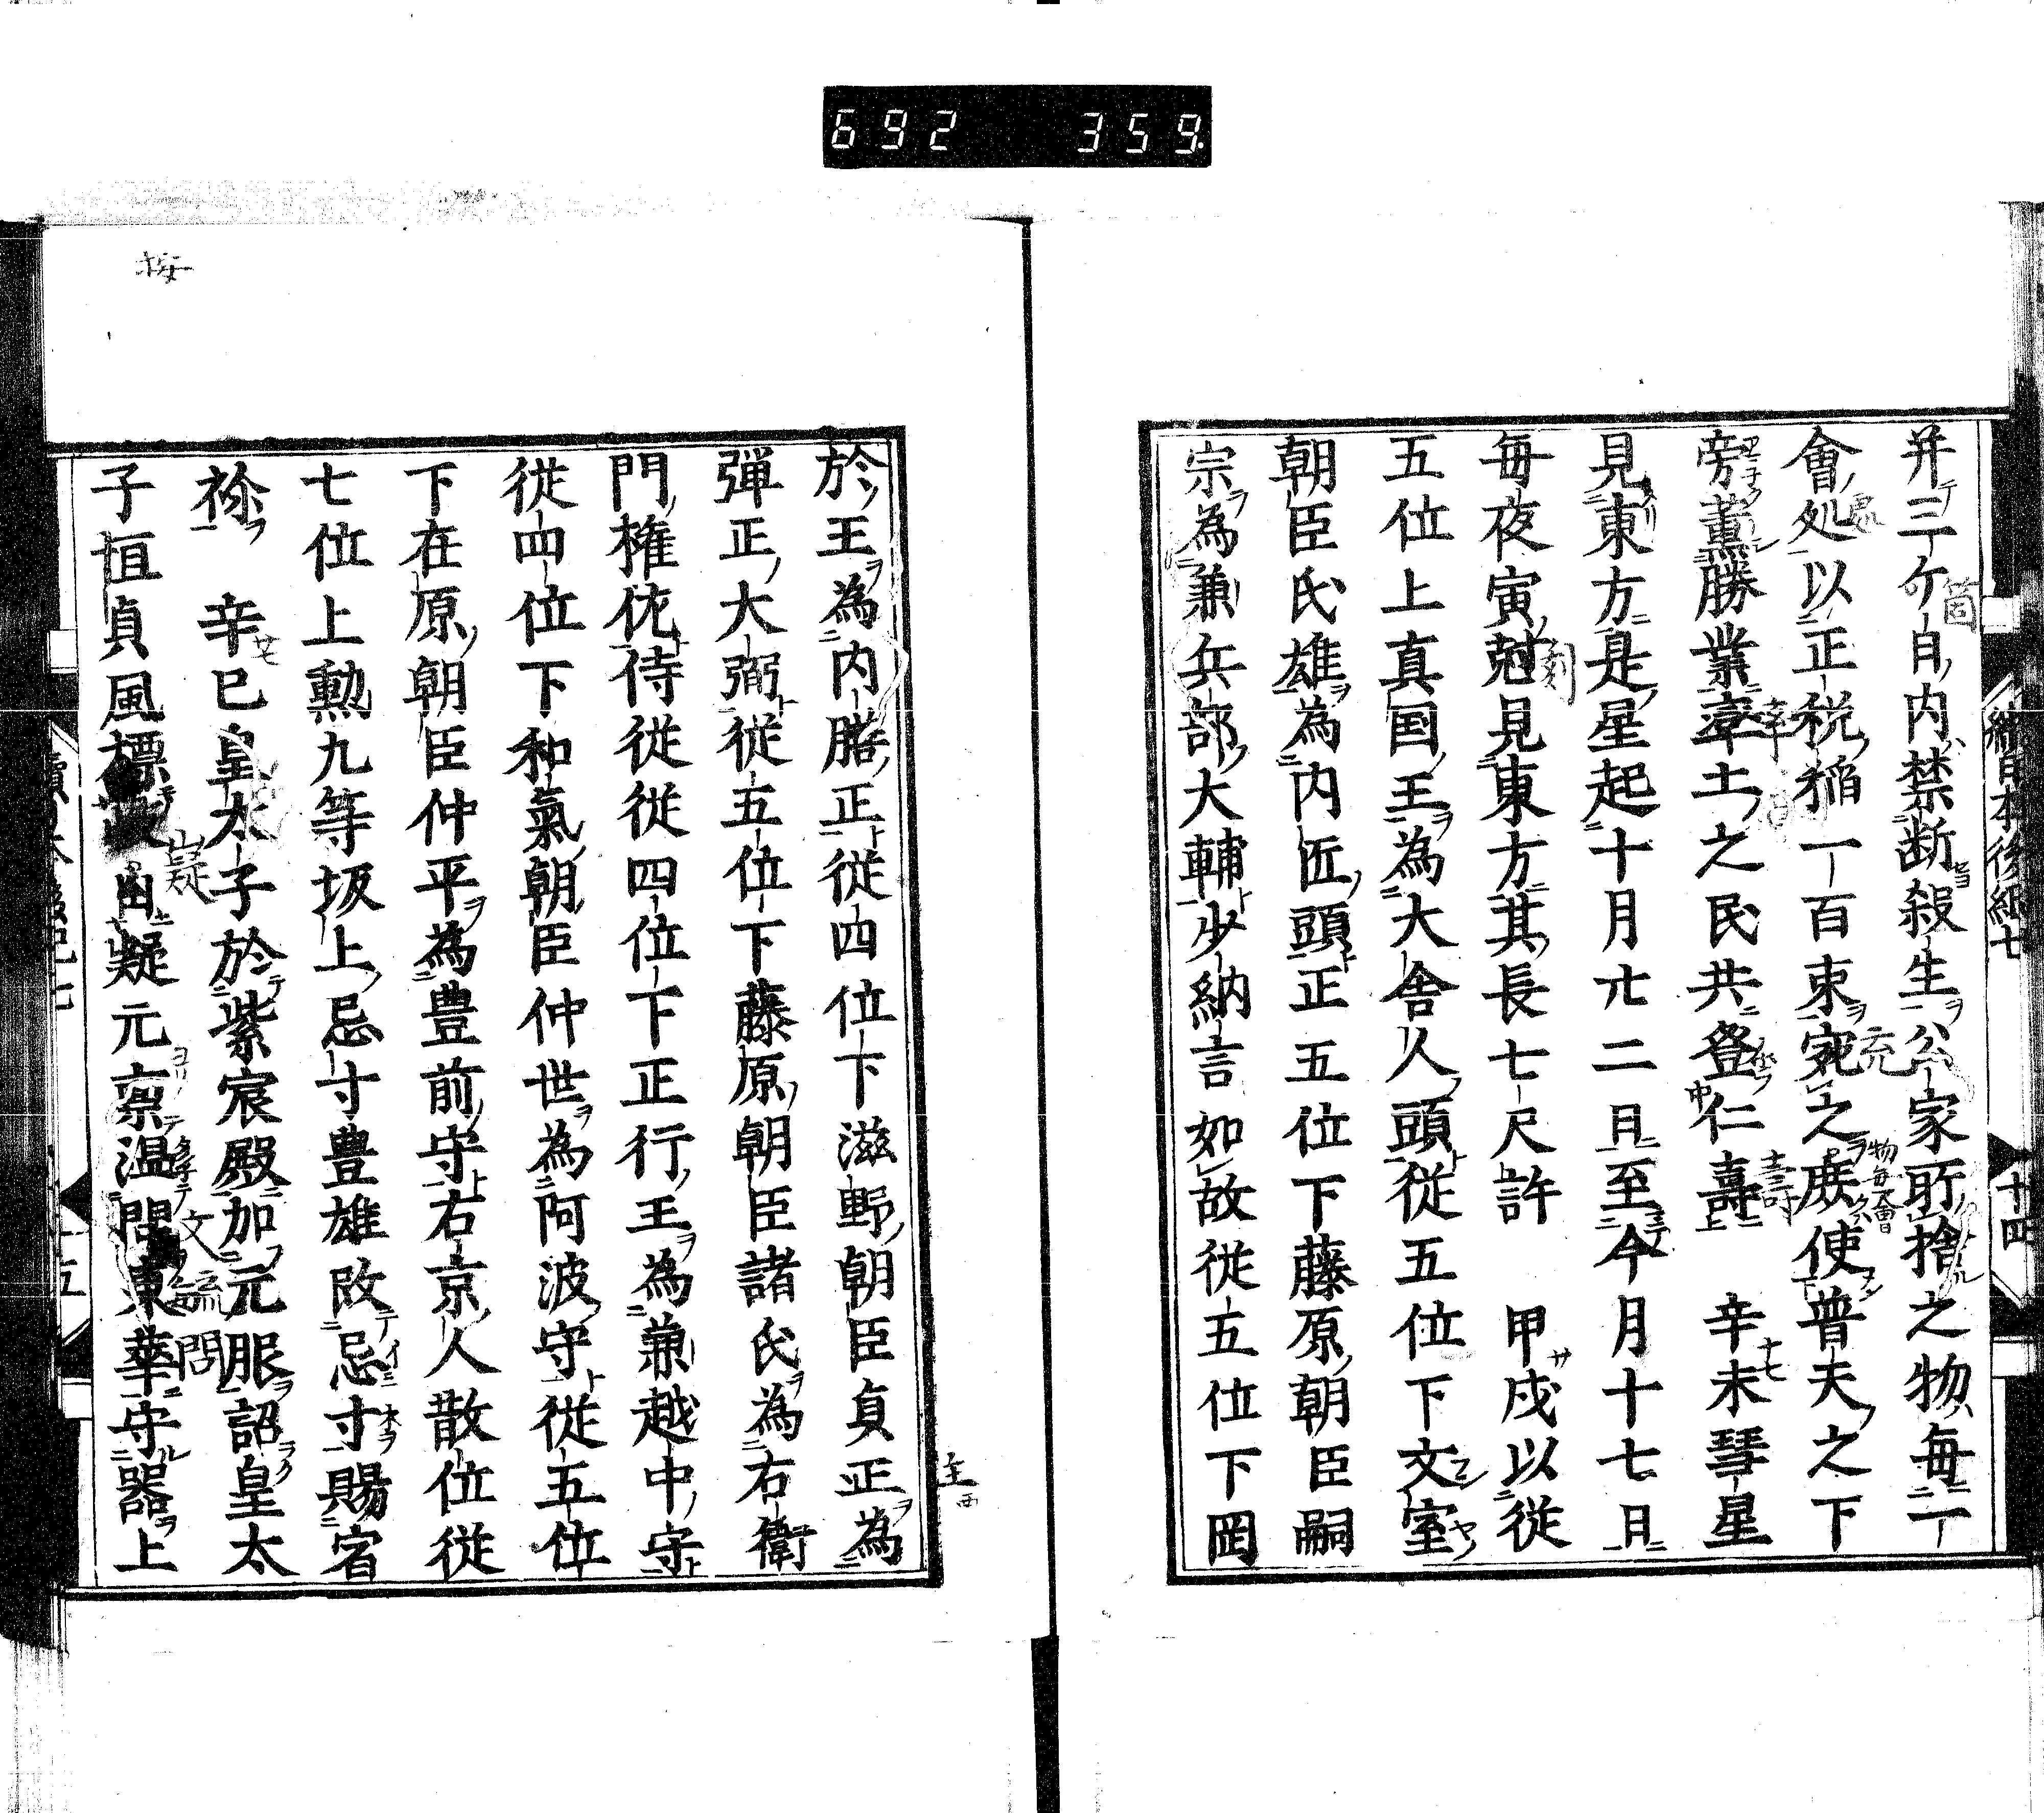 692 359
并三ケ日内禁断殺生公家所捨之物毎一
會処以正税稲一百束宛之庶使普天之下
旁薫勝業率土之民共登仁壽 辛未彗星
見東方是星起十月廿二日至今月十七日
毎夜寅尅見東方其長七尺許 甲戌以従
五位上真国王為大舎人頭従五位下文室
朝臣氏雄為内匠頭正五位下藤原朝臣嗣
宗為兼兵部大輔少納言如故従五位下岡
於王為内膳正従四位下滋野朝臣貞正為
弾正大弼従五位下藤原朝臣諸氏為右衛
門権佐侍従従四位下正行王為兼越中守
従四位下和氣朝臣仲世為阿波守従五位
下在原朝臣仲平為豊前守右京人散位従
七位上勲九等坂上忌寸豊雄改忌寸賜宿
祢 辛巳皇太子於紫宸殿加元服詔皇太
子恒貞風標 凝元禀温 東華守器上
按
續日本後紀七
十四